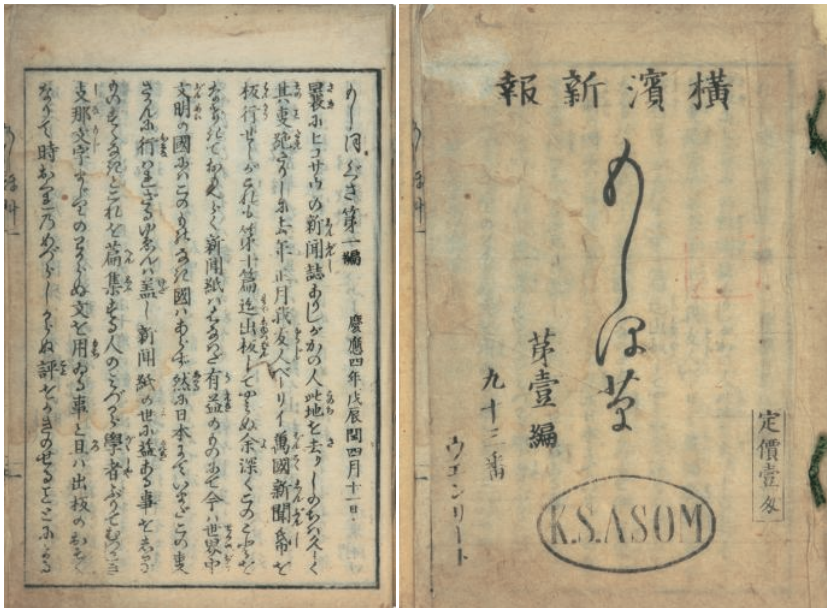 横濱新報
もしほ草
苐壹編
九十三番
ウエンリート
定價壹匁
K.S.ASOM
もしほぐさ第一編 慶應四年戊辰閏四月十一日
曩にヒコサウの新聞誌ありしがかの人此地を去りしのちハ久しく
其事絶たりしに去年正月我友人ベーリイ萬國新聞帋を
板行せしがこれも第十篇迄出板してやミぬ余深くこのことを
なげきておもへらく新聞紙ハはなはだ有益のものにて今ハ世界中
文明の國にハこのものなき國ハあらず然に日本にていまだこの事
さかんに行ハれざるゆゑんハ盖し新聞紙の世に益ある事をしらざる
これを篇集する人のミづから學者ぶりてむづかしき
支那文字まじりのわからぬ文を用ゐる事と且ハ出板のおそく
なりて時おくれ乃めづらしからぬ評をかきのせる